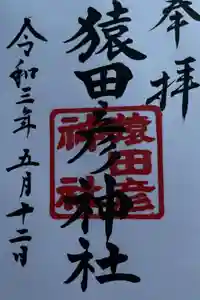 奉拝
猿田彦神社
猿田彦神社
令和三年五月十二日